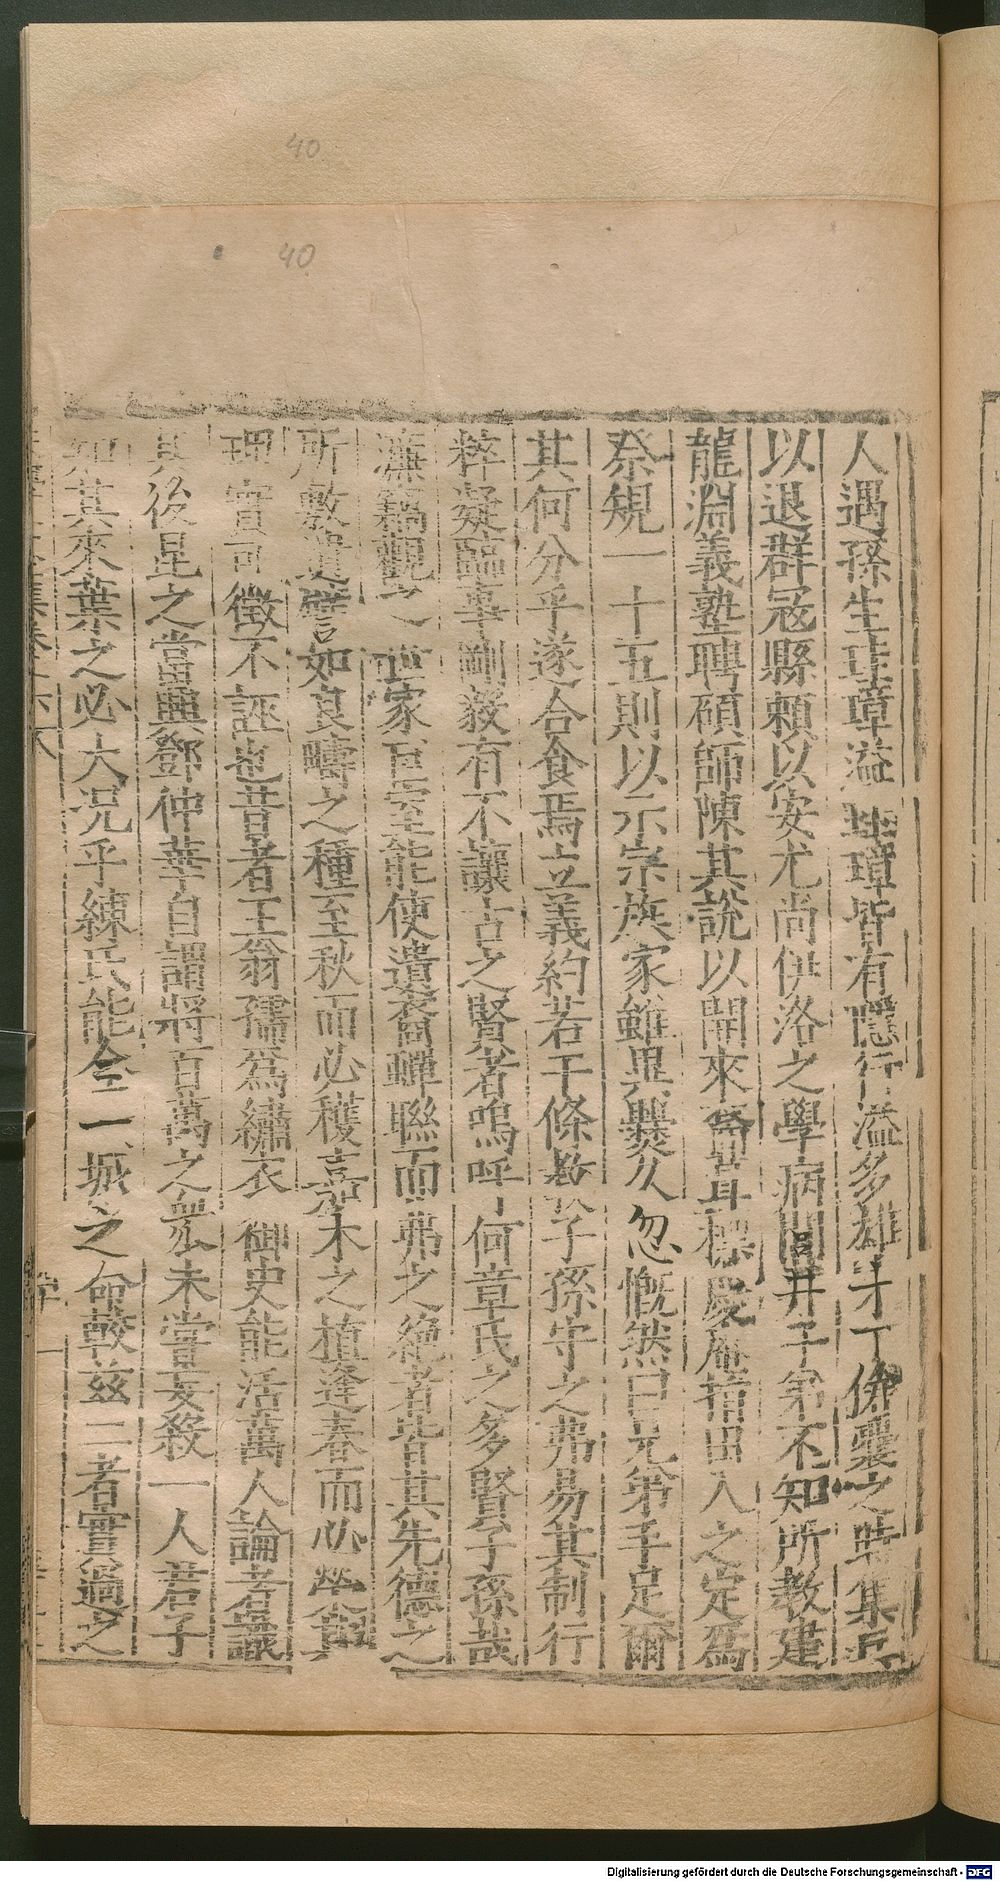 40
40
人遇孫生珪璋溢珪璋皆有隱行溢多雄才丁俶之時集兵
以退群冦縣賴以安尤尚伊洛之學病閭井子弟不知所教建
龍淵義塾聘碩師陳其說以開來裔且捐田入之定為
祭規一十五則以示宗族家雖異爨久忽慨然曰兄弟手足爾
其何分乎遂合食焉立義約若干條教子孫守之弗易其制行
粹凝臨事剛毅有不讓古之賢者嗚呼何章氏之多賢子孫哉
濂竊觀世家巨室能使遺裔蟬聯而弗之絶者皆其先德之
所敷遺譬如良疇之種至秋而必穫嘉木之植逢春而必榮
理實可徵不誣也昔者王翁孺為繡衣御史能活萬人論者識
其後昆之當興鄧仲華自謂將百萬之衆未嘗妄殺一人君子
知其來葉之必大况乎練氏能全一城之命較茲二者寔過之